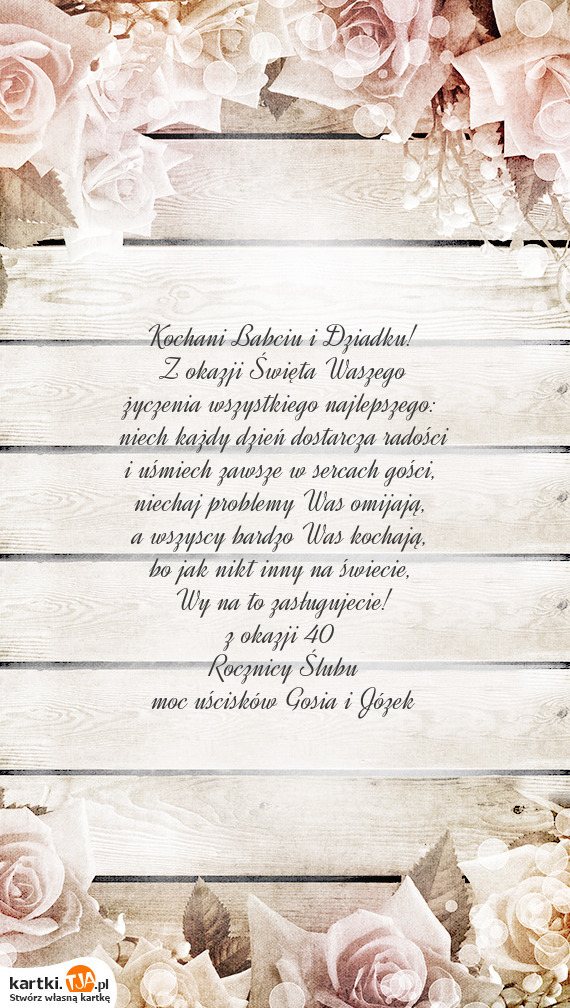 Kochani Babciu i Dziadku!
Z okazji Święta Waszego
życzenia wszystkiego najlepszego:
niech każdy dzień dostarcza radości
i uśmiech zawsze w sercach gości,
niechaj problemy Was omijają,
a wszyscy bardzo Was kochają,
bo jak nikt inny na świecie,
Wy na to zasługujecie!
z okazji 40
Rocznicy Ślubu
moc uścisków Gosia i Józek
kartki.TJA.pl
Stwórz własną kartkę